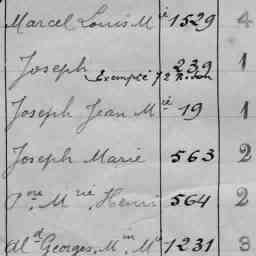 Marcel Louis Mie 1529 4
Joseph 239 1
Exempté 72
Joseph Jean Mie 19 1
Joseph Marie 563 2
Pre Mrie Henri 564 2
Ald Georges, Min Mie 1231 3